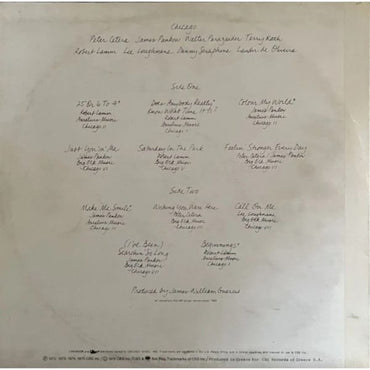 Chicago
Peter Cetera James Pankow Walter Parazaider Terry Kath
Robert Lamm Lee Loughnane Danny Seraphine Laudir De Oliveira
Side One
25 Or 6 To 4*
Robert Lamm
Aurelius Music
Chicago II
Does Anybody Really
Know What Time It Is?*
Robert Lamm
Aurelius Music
Chicago I
Colour My World*
James Pankow
Aurelius Music
Chicago II
Just You 'N' Me
James Pankow
Big Elk Music
Chicago VI
Saturday In The Park
Robert Lamm
Big Elk Music
Chicago V
Feelin Stronger Every Day
Peter Cetera/James Pankow
Big Elk Music
Chicago VI
Side Two
Make Me Smile*
James Pankow
Aurelius Music
Chicago II
Wishing You Were Here
Peter Cetera
Big Elk Music
Chicago VII
Call On Me
Lee Loughnane
Big Elk Music
Chicago VII
(I've Been)
Searchin So Long
James Pankow
Big Elk Music
Chicago VII
Beginnings*
Robert Lamm
Aurelius Music
Chicago I
Produced by James William Guercio